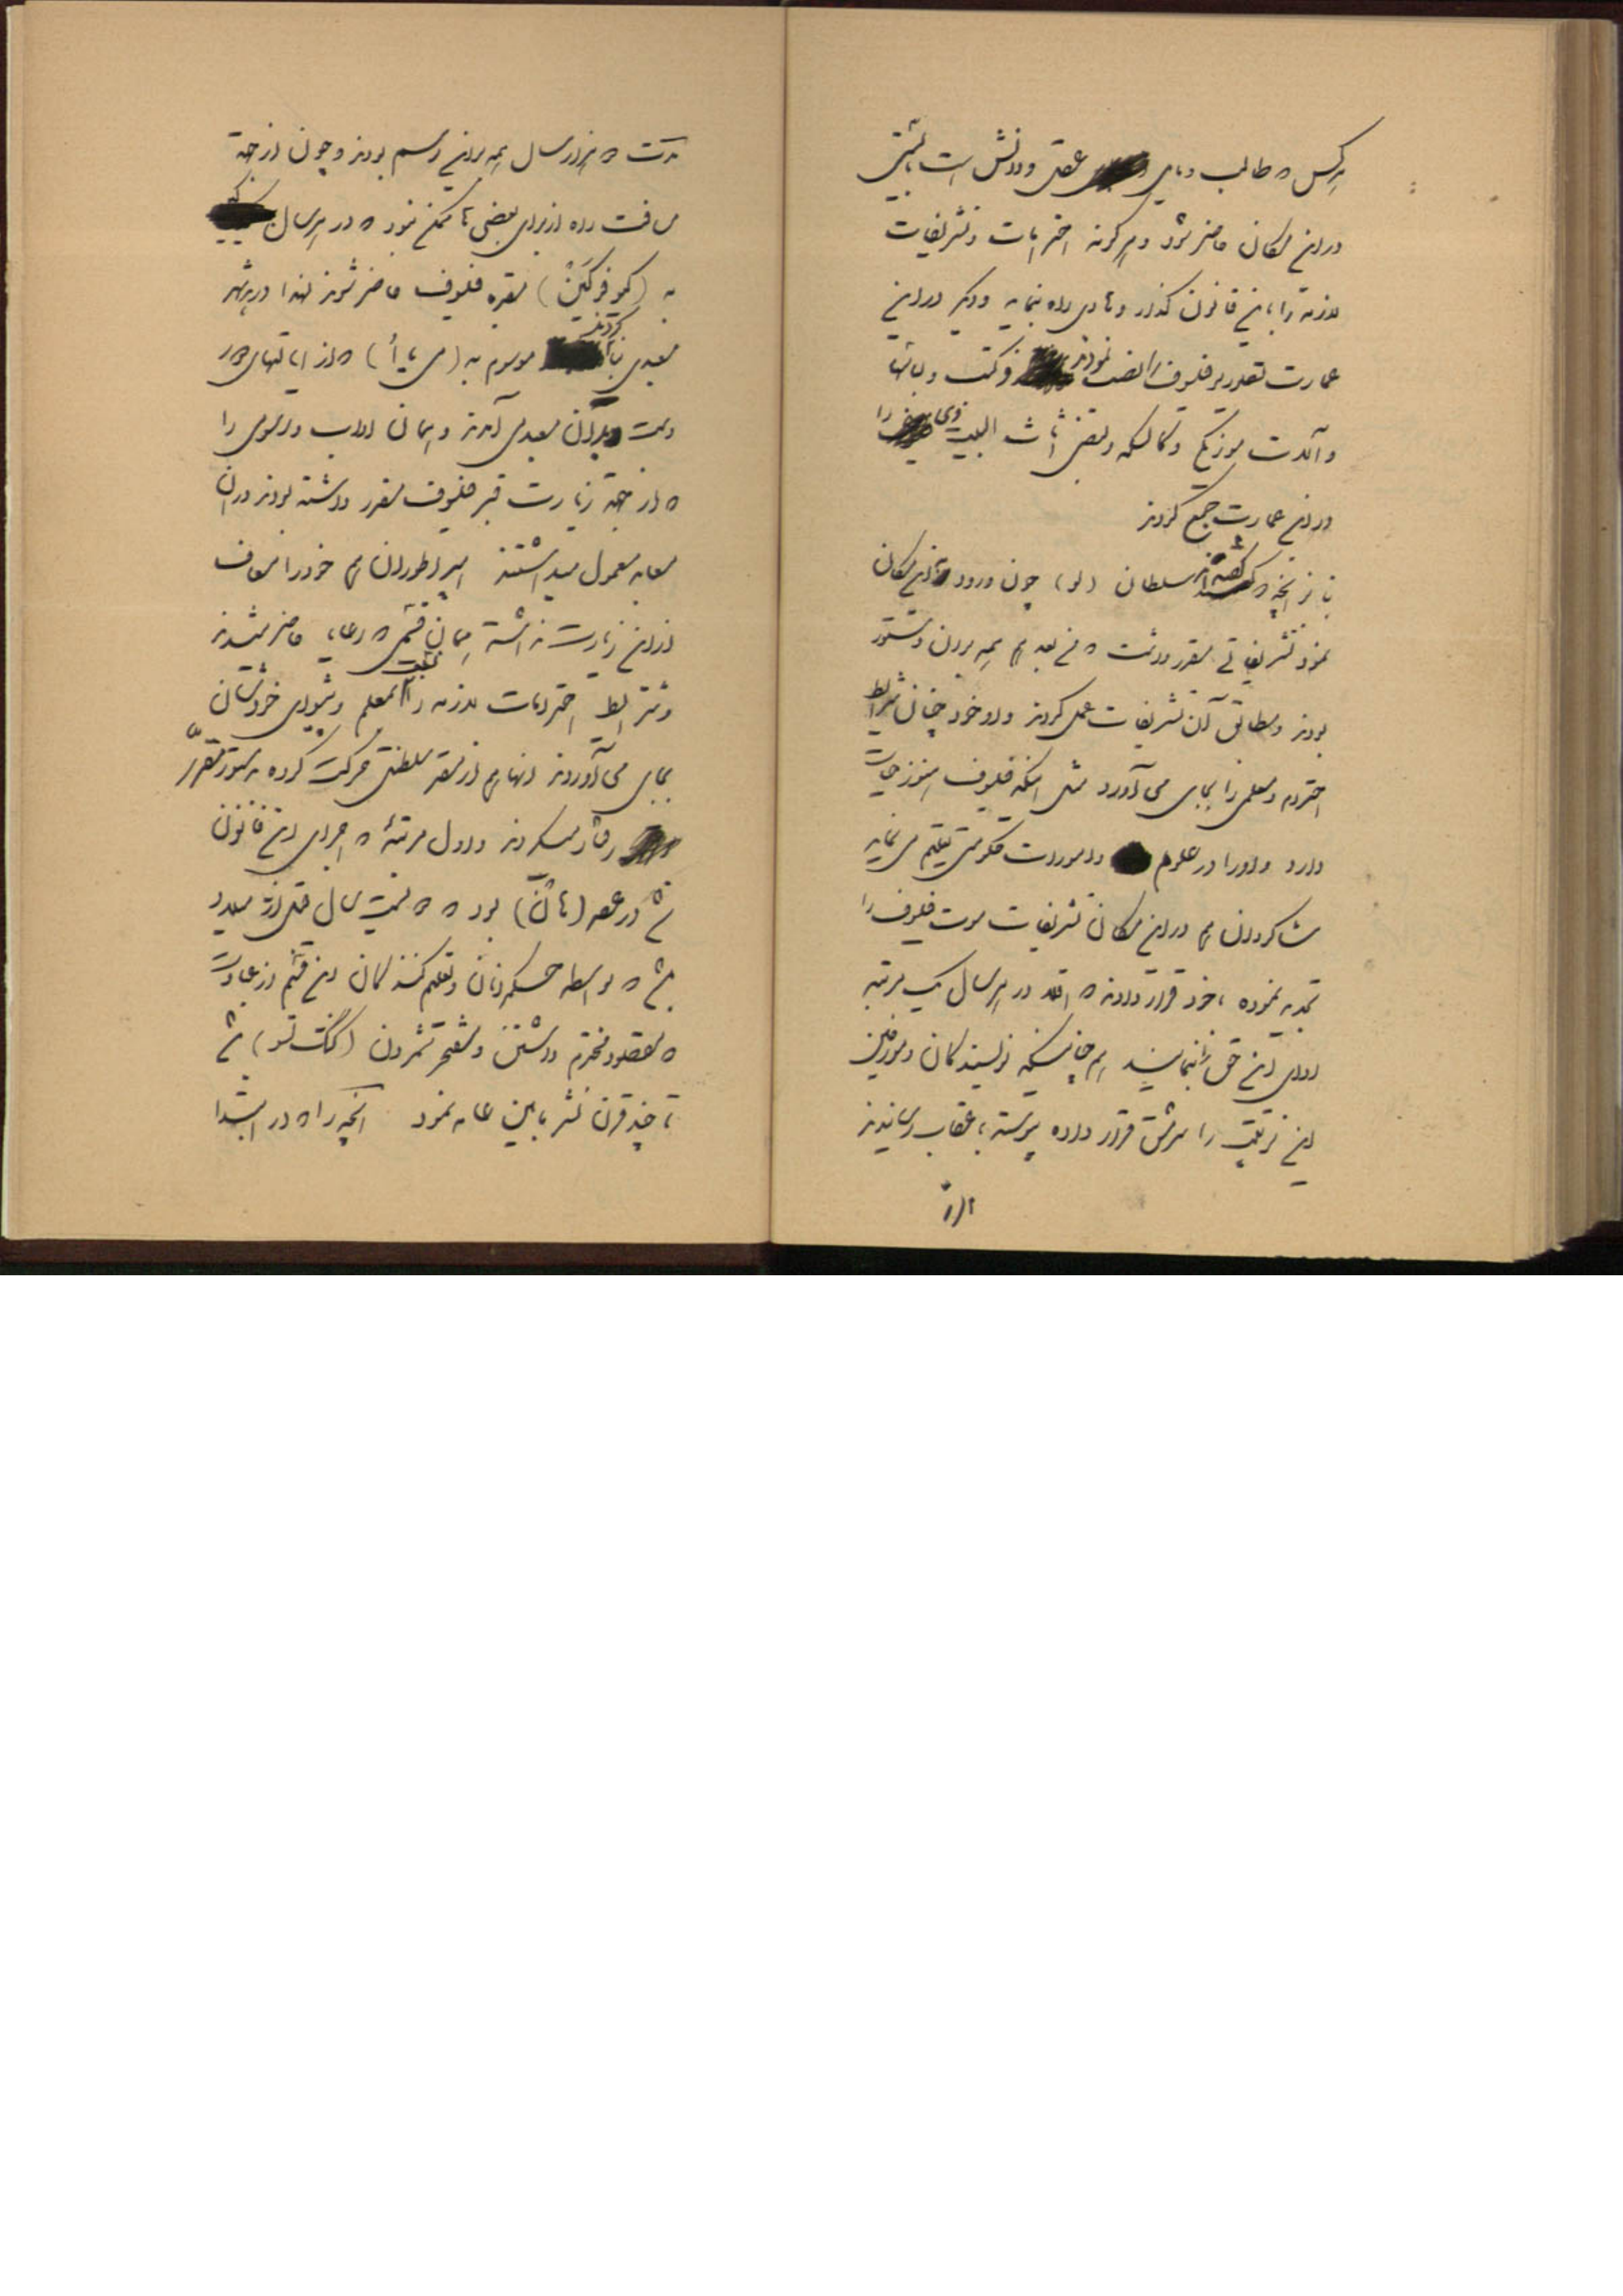 هرکس که طالب و مایل عقل و دانش است بایستی
در این مکان حاضر شود و هرگونه احترامات و تشریفات
لازمه را باین قانون گذار و هادی راه نماید و دیگر در این
عمارت تصاویر فیلسوف را نصب نمودند و کتب و لباسها
و آلات موزیک و کالسکه و بعضی اثاث البیت وی را
در این عمارت جمع کردند
بنا بر آنچه که گفته‌اند سلطان (لو) چون ورود باین مکان
نمود تشریفاتی مقرر داشت که من بعد هم همه بر آن دستور
بودند و مطابق آن تشریفات عمل کردند و او خود چنان شرایط
احترام و معلمی را بجای می‌آورد مثل اینکه فیلسوف هنوز حیات
دارد و او را در علوم و امورات حکومتی تعلیم می‌نماید
شاگردان هم در این مکان تشریفات موت فیلسوف را
تجدید نموده با خود قرار دادند که اقلا در هر سال یک مرتبه
ادای این حق را بنمایند هم چنانکه نویسندگان و مورخین
این ترتیب را سرمشق قرار داده پیوسته باعقاب رسانیدند
مدت دو هزار سال همه بر این رسم بودند و چون از جهة
مسافت راه از برای بعضی‌ها ممکن نبود که در هر سال
به (کیو فو کین) مقبره فیلسوف حاضر شوند لهذا در هر شهر
معبدی بنا کردند موسوم به (می یا أ) که از ایالتهای دور
دست بدان معبد می آمدند و همان آداب و رسومی را
که از جهة زیارت قبر فیلسوف مقرر داشته بودند در آن
معابد معمول میداشتند امپراطوران هم خود را معاف
از این زیارت نداشته همان قسمی که رعایا حاضر میشدند
و شرایط احترامات لازمه را نسبت بمعلم و پیشوای خودشان
بجای می‌آوردند آنها هم از مقر سلطنتی حرکت کرده بدستور مقرر
رفتار میکردند و اول مرتبهٔ که اجرای این قانون
شد در عصر (هان) بود که دویست سال قبل از میلاد
که بواسطه حکمرانان و تعلیم کنندگان این قسم از عادات
که مقصود محترم داشتن و مفخر شمردن (کنک تسو) شد
تا چند قرن نشر ما بین عامه نمود آنچه را که در ابتدا